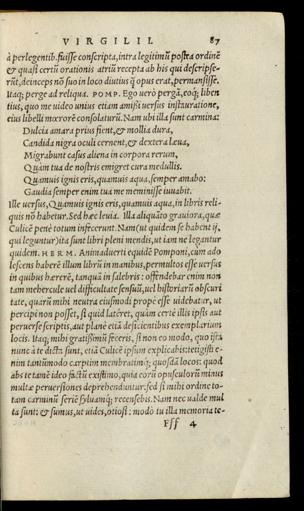 VIRGILII. 87
à perlegentib. fuisse conscripta, intra legitimū postra ordinē
& quasi certū orationis atriū recepta ab his qui descripse-
rūt, deinceps nō suo in loco diutius q̄ opus erat, permansisse.
Itaq; perge ad reliqua. POMP. Ego uerò pergā, eoq; liben
tius, quo me uideo unius etiam amissi uersus instauratione,
eius libelli mœrorē consolaturū. Nam ubi illa sunt carmina:
Dulcia amara prius fient, & mollia dura,
Candida nigra oculi cernent, & dextera læua,
Migrabunt casus aliena in corpora rerum,
Quàm tua de nostris emigret cura medullis.
Quamuis ignis eris, quamuis aqua, semper amabo:
Gaudia semper enim tua me meminisse iuuabit.
Ille uersus, Quamuis ignis eris, quamuis aqua, in libris reli-
quis nō habetur. Sed hæc leuia. Illa aliquāto grauiora, quæ
Culicē penè totum infecerunt. Nam (ut quidem se habent ij,
qui leguntur) ita sunt libri pleni mendis, ut iam ne legantur
quidem. HERM. Animaduerti equidē Pomponi, cum ado
lescens haberē illum librū in manibus, permultos esse uersus
in quibus hærerē, tanquā in salebris: offendebar enim non
tam mehercule uel difficultate sensuū, uel historiarū obscuri
tate, quarū mihi neutra eiusmodi propè esse uidebatur, ut
percipi non posset, si quid latéret, quàm certè illis ipsis aut
peruersè scriptis, aut planè etiā deficientibus exemplarium
locis. Itaq; mihi gratissimū feceris, si non eo modo, quo istā
nunc à te dictā sunt, etiā Culicē ipsum explicabis: tetigisti e-
nim tantūmodo carptim membratimq; quosdā locos: quod
abs te tamē ideo factū existimo, quia eorū opusculorū minus
multæ peruersiones deprehenduntur: sed si mihi ordine to-
tam carminū serie syluamq; recensebis. Nam nec ualde mul
ta sunt: & sumus, ut uides, otiosi: modo tu illa memoria te-
Fff 4